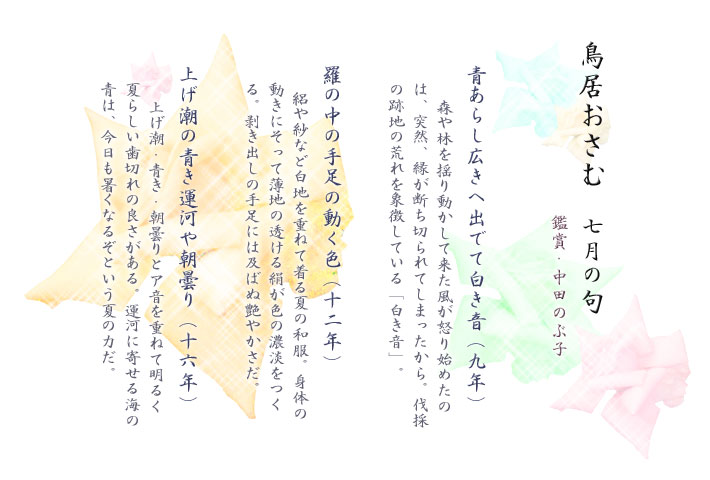 鳥居おさむ　七月の句
鑑賞・中田のぶ子
青あらし広きへ出でて白き音（九年）
森や林を揺り動かして来た風が怒り始めたの
は、突然、緑が断ち切られてしまったから。伐採
の跡地の荒れを象徴している「白き音」。
羅の中の手足の動く色（十二年）
絽や紗など白地を重ねて着る夏の和服。身体の
動きにそって薄地の透ける絹が色の濃淡をつく
る。剥き出しの手足には及ばぬ艶やかさだ。
上げ潮の青き運河や朝曇り（十六年）
上げ潮・青き・朝曇りとア音を重ねて明るく
夏らしい歯切れの良さがある。運河に寄せる海の
青は、今日も暑くなるぞという夏の力だ。